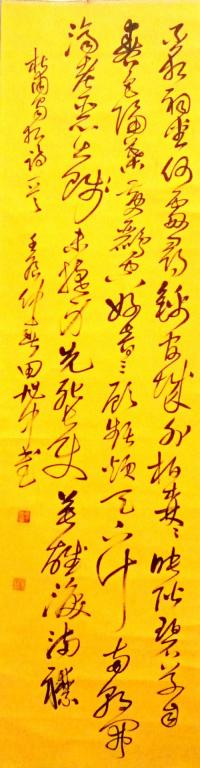 丞相祠堂何處尋錦官城外柏森々映階碧草自
春色隔葉黃鸝空好音三顧頻煩天下計兩朝開
濟老臣心出師未捷身先死長使英雄淚滿襟
杜甫蜀相詩一首 壬辰仲春田旭中書